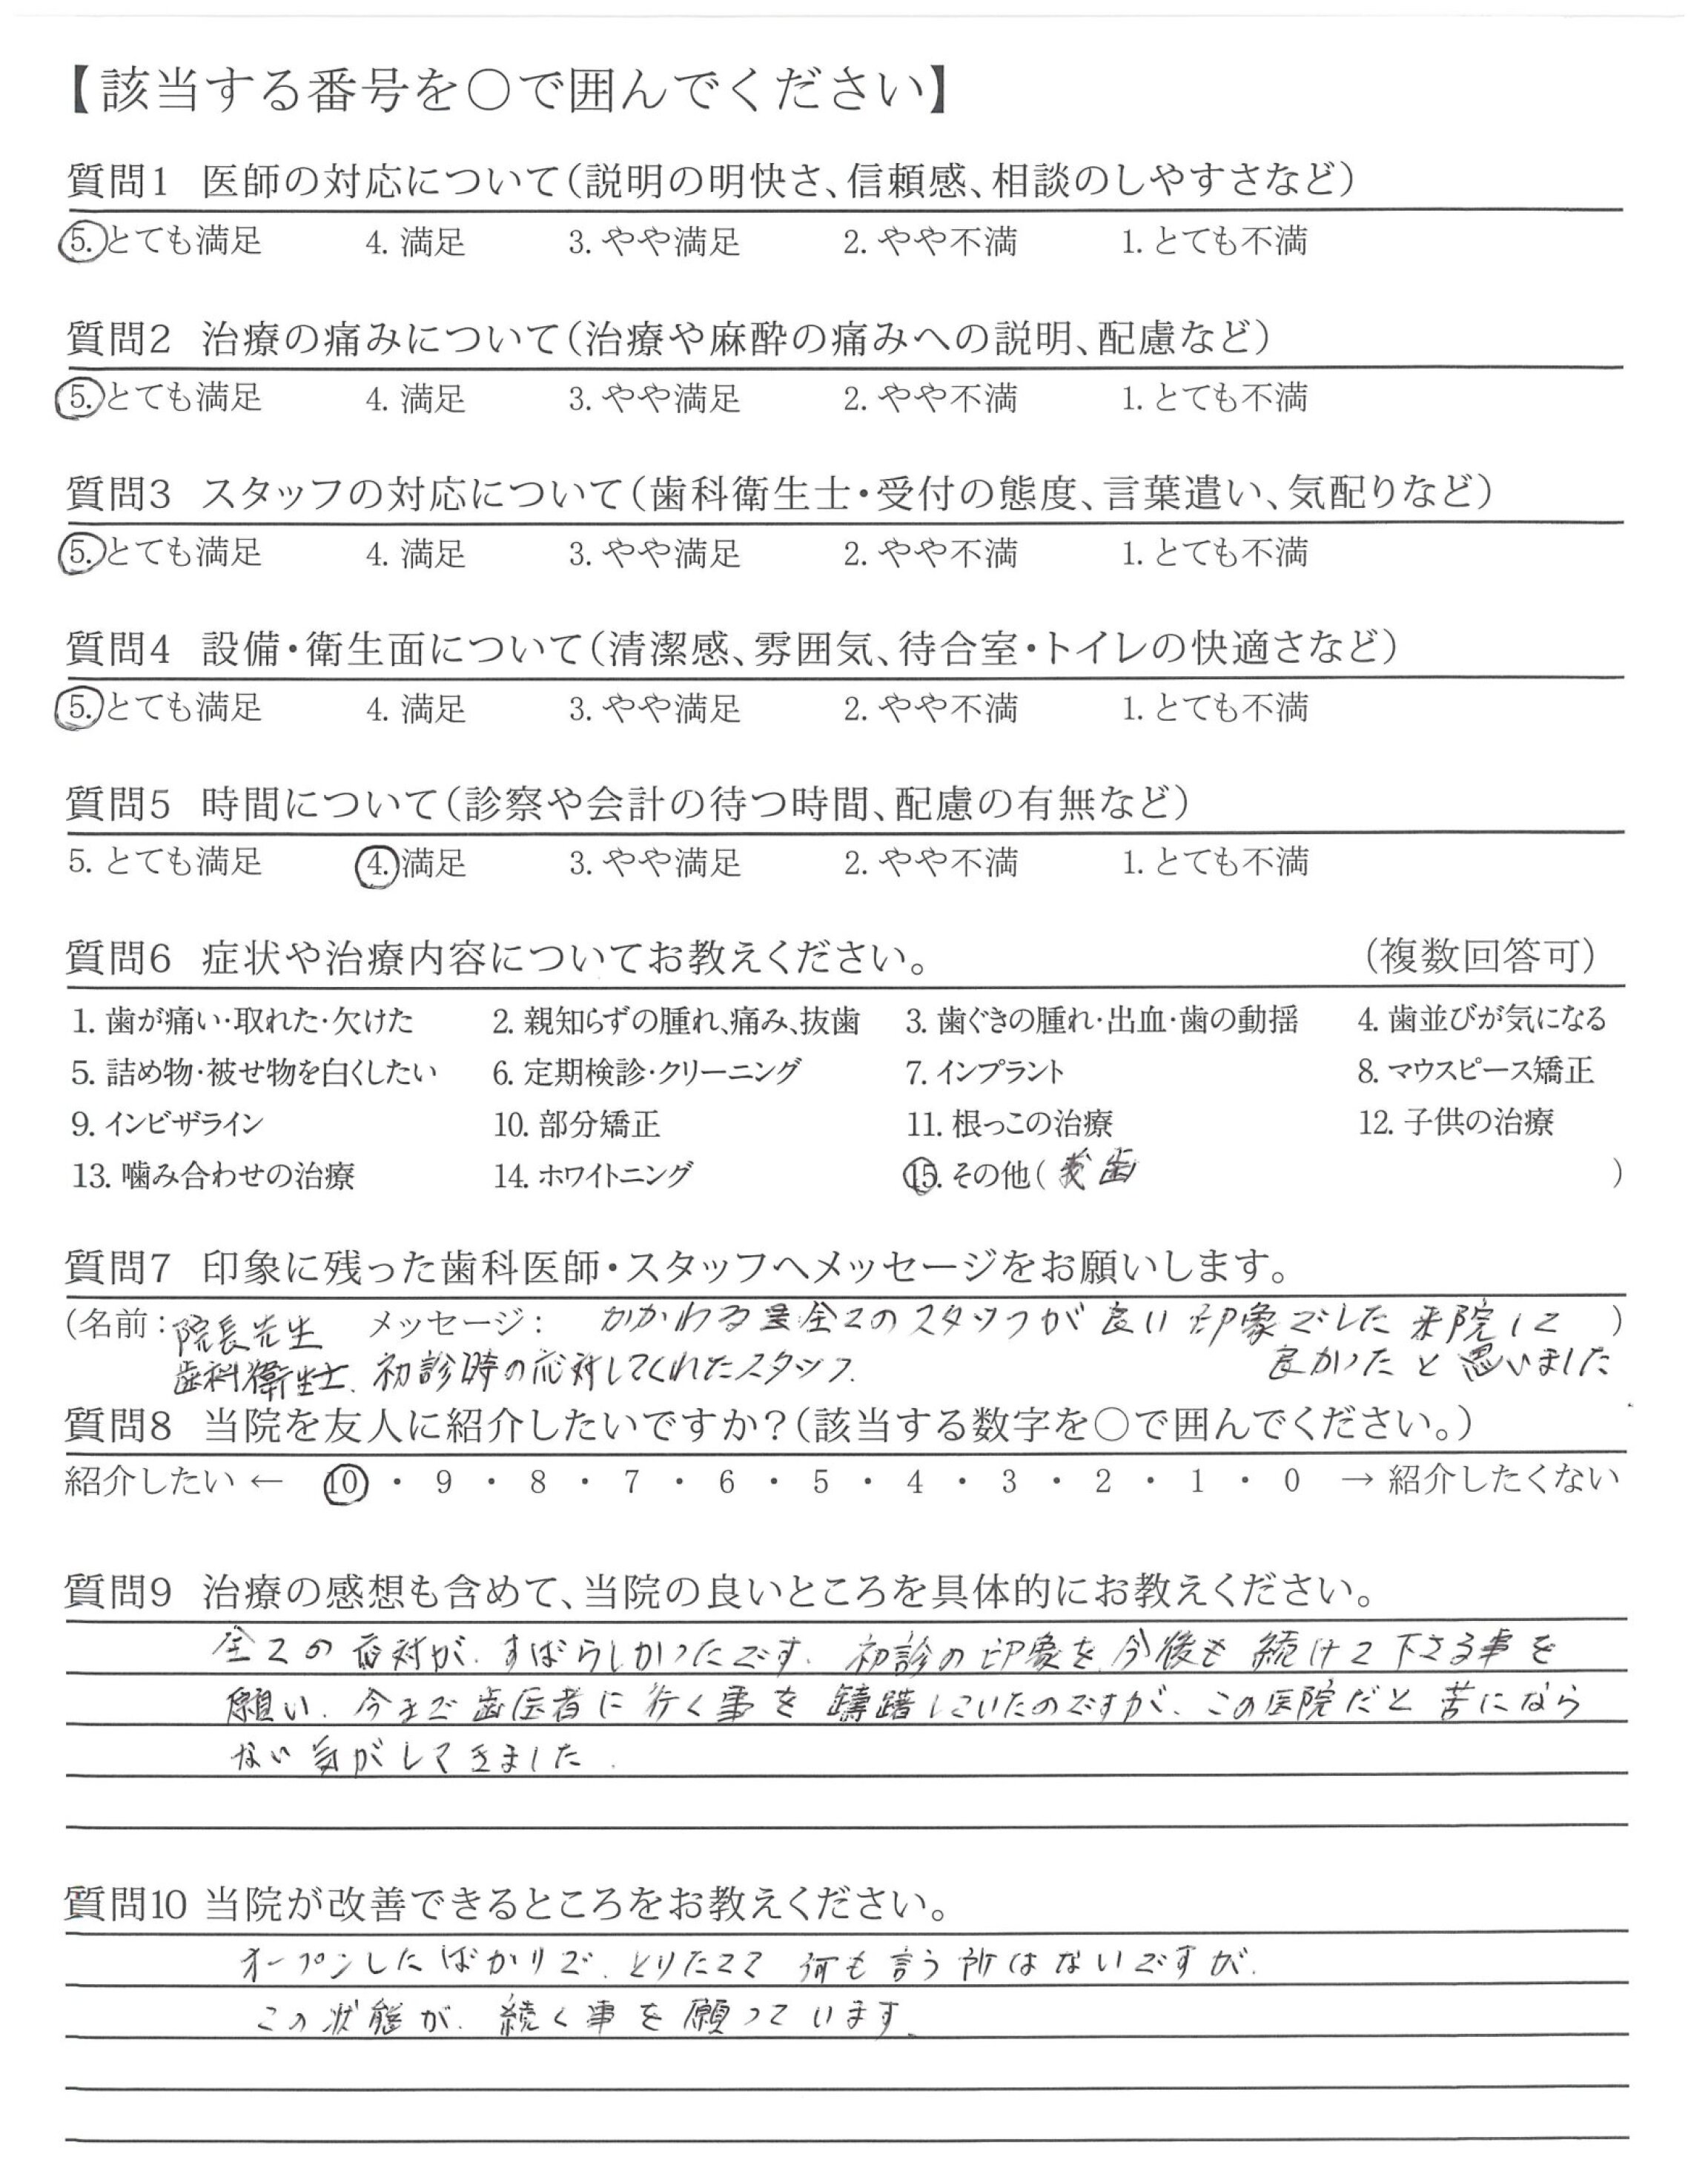 【該当する番号を○で囲んでください】
質問1 医師の対応について(説明の明快さ、信頼感、相談のしやすさなど)
5. とても満足 4. 満足 3. やや満足 2. やや不満 1. とても不満
質問2 治療の痛みについて(治療や麻酔の痛みへの説明、配慮など)
5. とても満足 4. 満足 3. やや満足 2. やや不満 1. とても不満
質問3 スタッフの対応について(歯科衛生士・受付の態度、言葉遣い、気配りなど)
5. とても満足 4. 満足 3. やや満足 2. やや不満 1. とても不満
質問4 設備・衛生面について(清潔感、雰囲気、待合室・トイレの快適さなど)
5. とても満足 4. 満足 3. やや満足 2. やや不満 1. とても不満
質問5 時間について(診察や会計の待つ時間、配慮の有無など)
5. とても満足 4. 満足 3. やや満足 2. やや不満 1. とても不満
質問6 症状や治療内容についてお教えください。 (複数回答可)
1. 歯が痛い・取れた・欠けた 2. 親知らずの腫れ、痛み、抜歯 3. 歯ぐきの腫れ・出血・歯の動揺 4. 歯並びが気になる
5. 詰め物・被せ物を白くしたい 6. 定期検診・クリーニング 7. インプラント 8. マウスピース矯正
9. インビザライン 10. 部分矯正 11. 根っこの治療 12. 子供の治療
13. 噛み合わせの治療 14. ホワイトニング 15. その他( 義歯 )
質問7 印象に残った歯科医師・スタッフへメッセージをお願いします。
(名前:院長先生 メッセージ: かかわる全てのスタッフが良い印象でした 来院して )
歯科衛生士、初診時の応対してくれたスタッフ. 良かったと思いました
質問8 当院を友人に紹介したいですか?(該当する数字を○で囲んでください。)
紹介したい ← 10 ・ 9 ・ 8 ・ 7 ・ 6 ・ 5 ・ 4 ・ 3 ・ 2 ・ 1 ・ 0 → 紹介したくない
質問9 治療の感想も含めて、当院の良いところを具体的にお教えください。
全ての応対が、すばらしかったです. 初診の印象を今後も続けて下さる事を
願い、今まで歯医者に行く事を躊躇していたのですが、この医院だと苦になら
ない気がしてきました.
質問10 当院が改善できるところをお教えください。
オープンしたばかりで、とりたてて何も言う所はないですが、
この状態が、続く事を願っています.